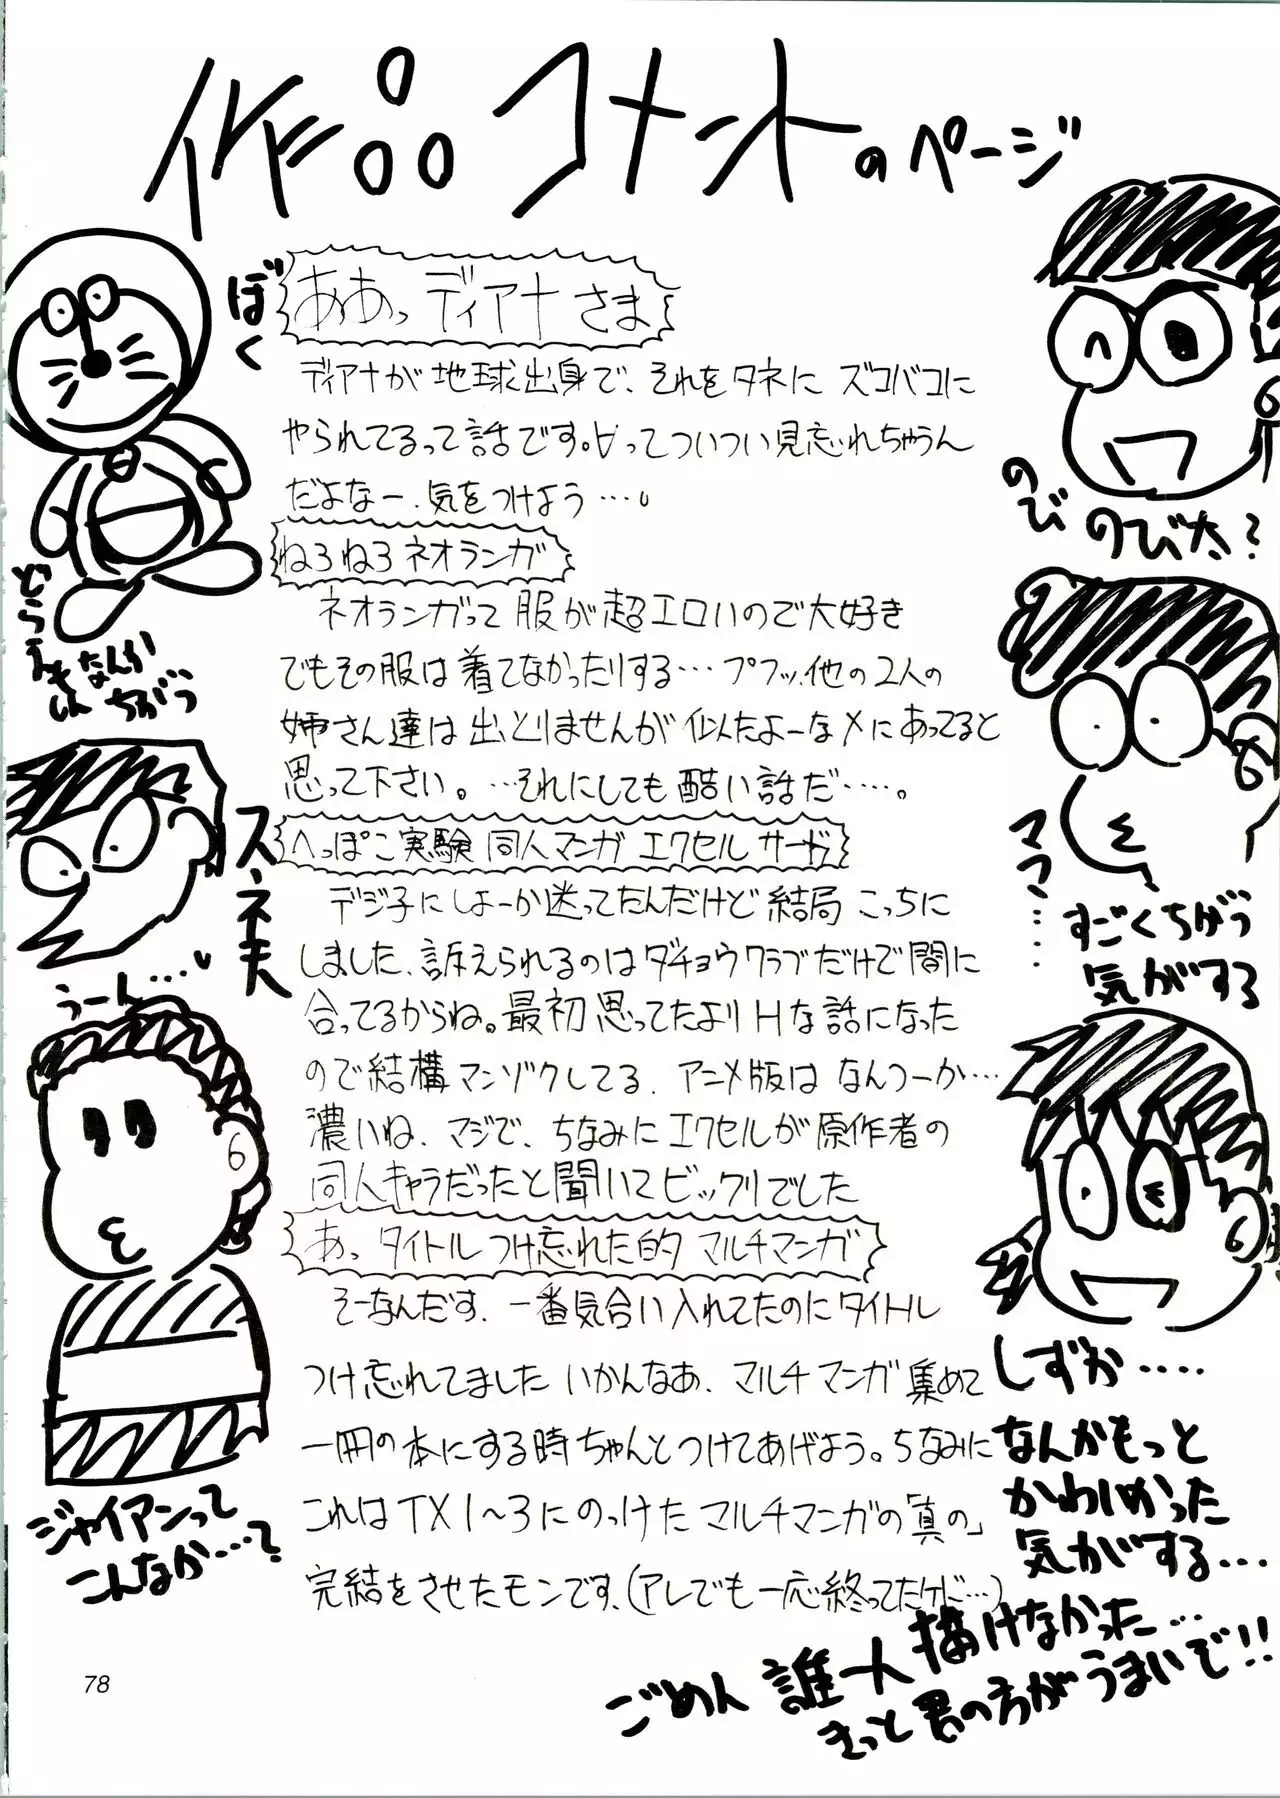 作品コメントのページ
ああっディアナさま
ディアナが地球出身で、それをタネにズコバコに
やられてるって話です。∀ってついつい見忘れちゃうん
だよなー、気をつけよう…。
ねろねろネオランガ
ネオランガって服が超エロいので大好き
でもその服は着てなかったりする…プフッ、他の2人の
姉さん達は出とりませんが似たよーなメにあってると
思って下さい。…それにしても酷い話だ……。
へっぽこ実験同人マンガエクセルサーガ
デジ子にしよーか迷ってたんだけど結局こっちに
しました、訴えられるのはダチョウクラブだけで間に
合ってるからね。最初思ってたよりHな話になった
ので結構マンゾクしてる、アニメ版はなんつーか…
濃いね、マジで、ちなみにエクセルが原作者の
同人キャラだったと聞いてビックリでした
あっタイトルつけ忘れた的マルチマンガ
そーなんだす、一番気合い入れてたのにタイトル
つけ忘れてましたいかんなあ、マルチマンガ集めて
一冊の本にする時ちゃんとつけてあげよう。ちなみに
これはTX1〜3にのっけたマルチマンガの「真の」
完結をさせたモンです、(アレでも一応終ってたけど…)
ぼく
どらえもん
なんか
ちがう
スネ夫
うーん…
ジャイアンって
こんなか…?
のび
のび太?
ママ……
すごくちがう
気がする
しずか……
なんかもっと
かわいかった
気がする…
ごめん誰一人描けなかった…
きっと君の方がうまいで!!
78